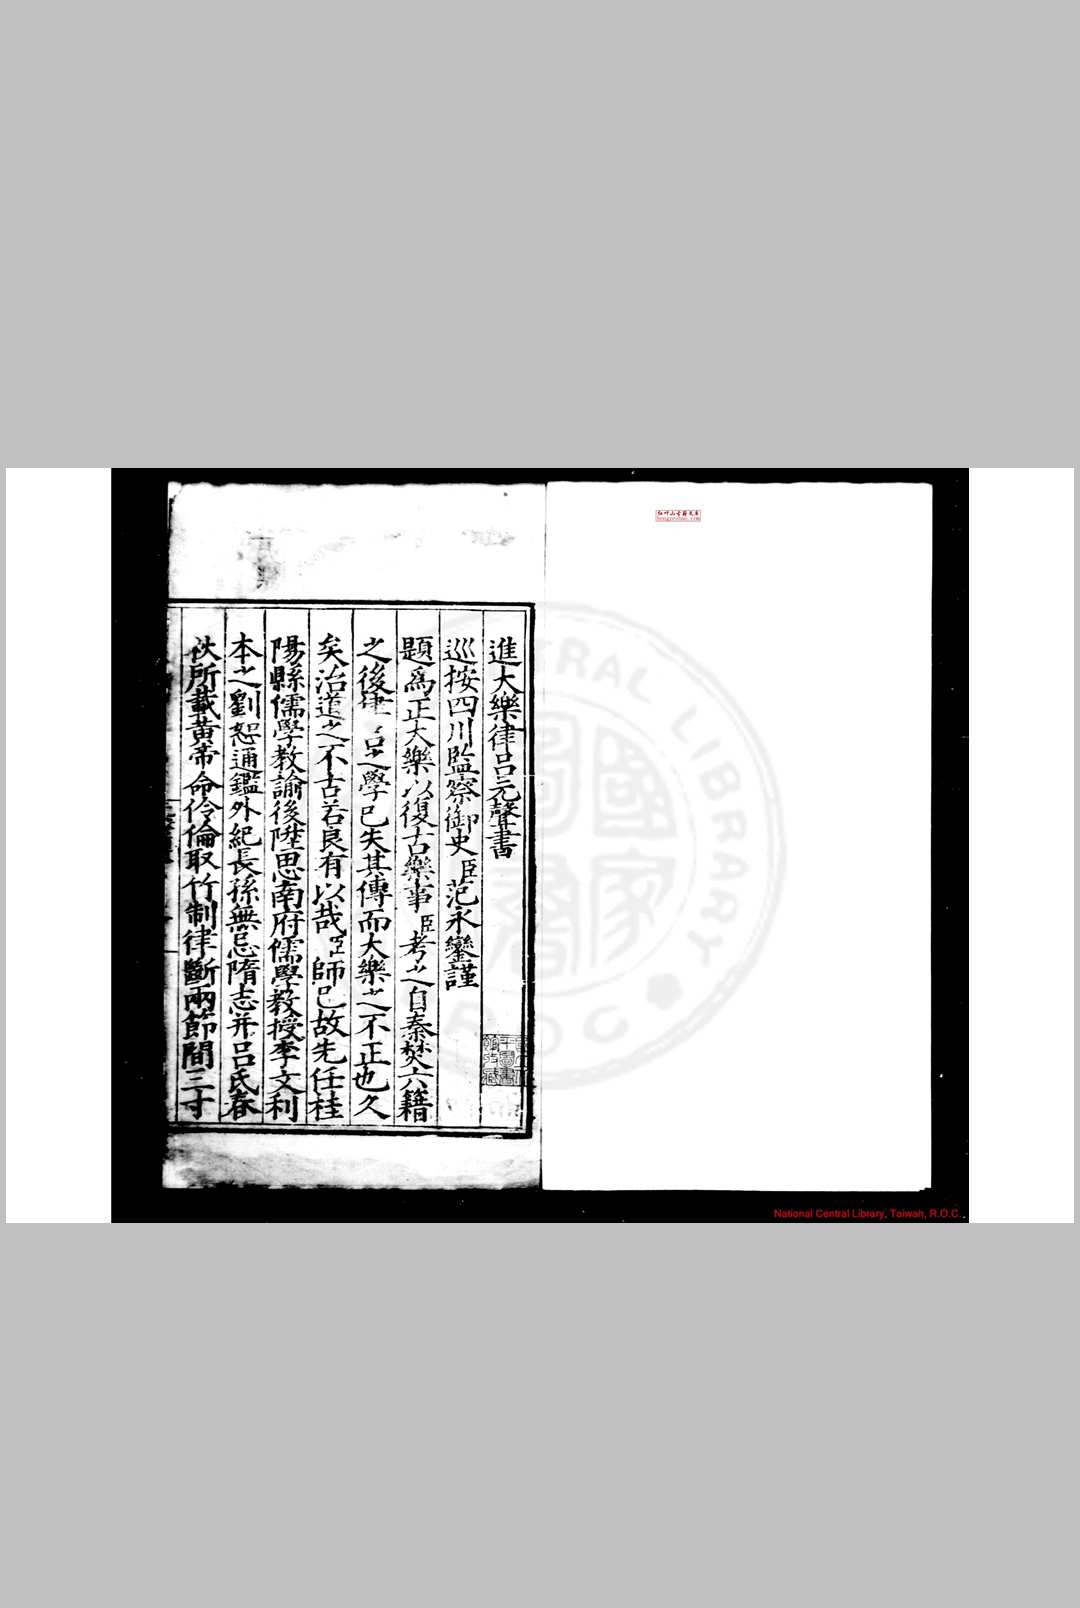 進大樂律呂元聲書
巡按四川監察御史臣范永鑾謹
題爲正大樂以復古樂事臣考之自秦焚六籍
之後律呂之學已失其傳而大樂之不正也久
矣治道之不古若良有以哉臣師已故先任桂
陽縣儒學教諭後陞思南府儒學教授李文利
本之劉恕通鑑外紀長孫無忌隋志并呂氏春
秋所載黃帝命伶倫取竹制律斷兩節間三寸
CENTRAL LIBRARY
R.O.C
國家圖書
National Central Library, Taiwan, R.O.C.